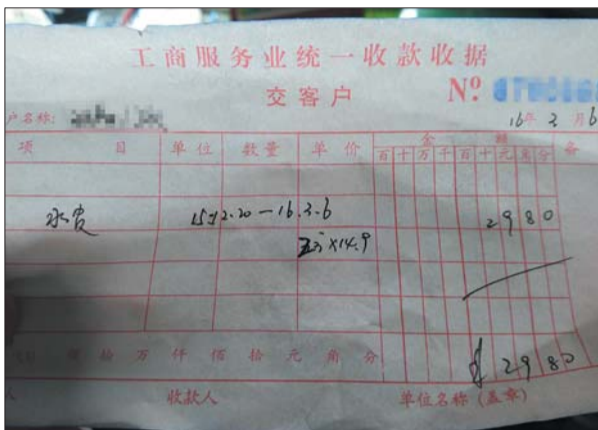 工商服务业统一收款收据
交客户
Nº
户名称:
16年 3 月 6
项 目 单位 数量 单价 金 额 备
百 十 万 千 百 十 元 角 分
水费 15.12.20—16.3.6 2980
×14.9
拾 万 仟 佰 拾 元 角 分 2980
收款人 单位名称(盖章)